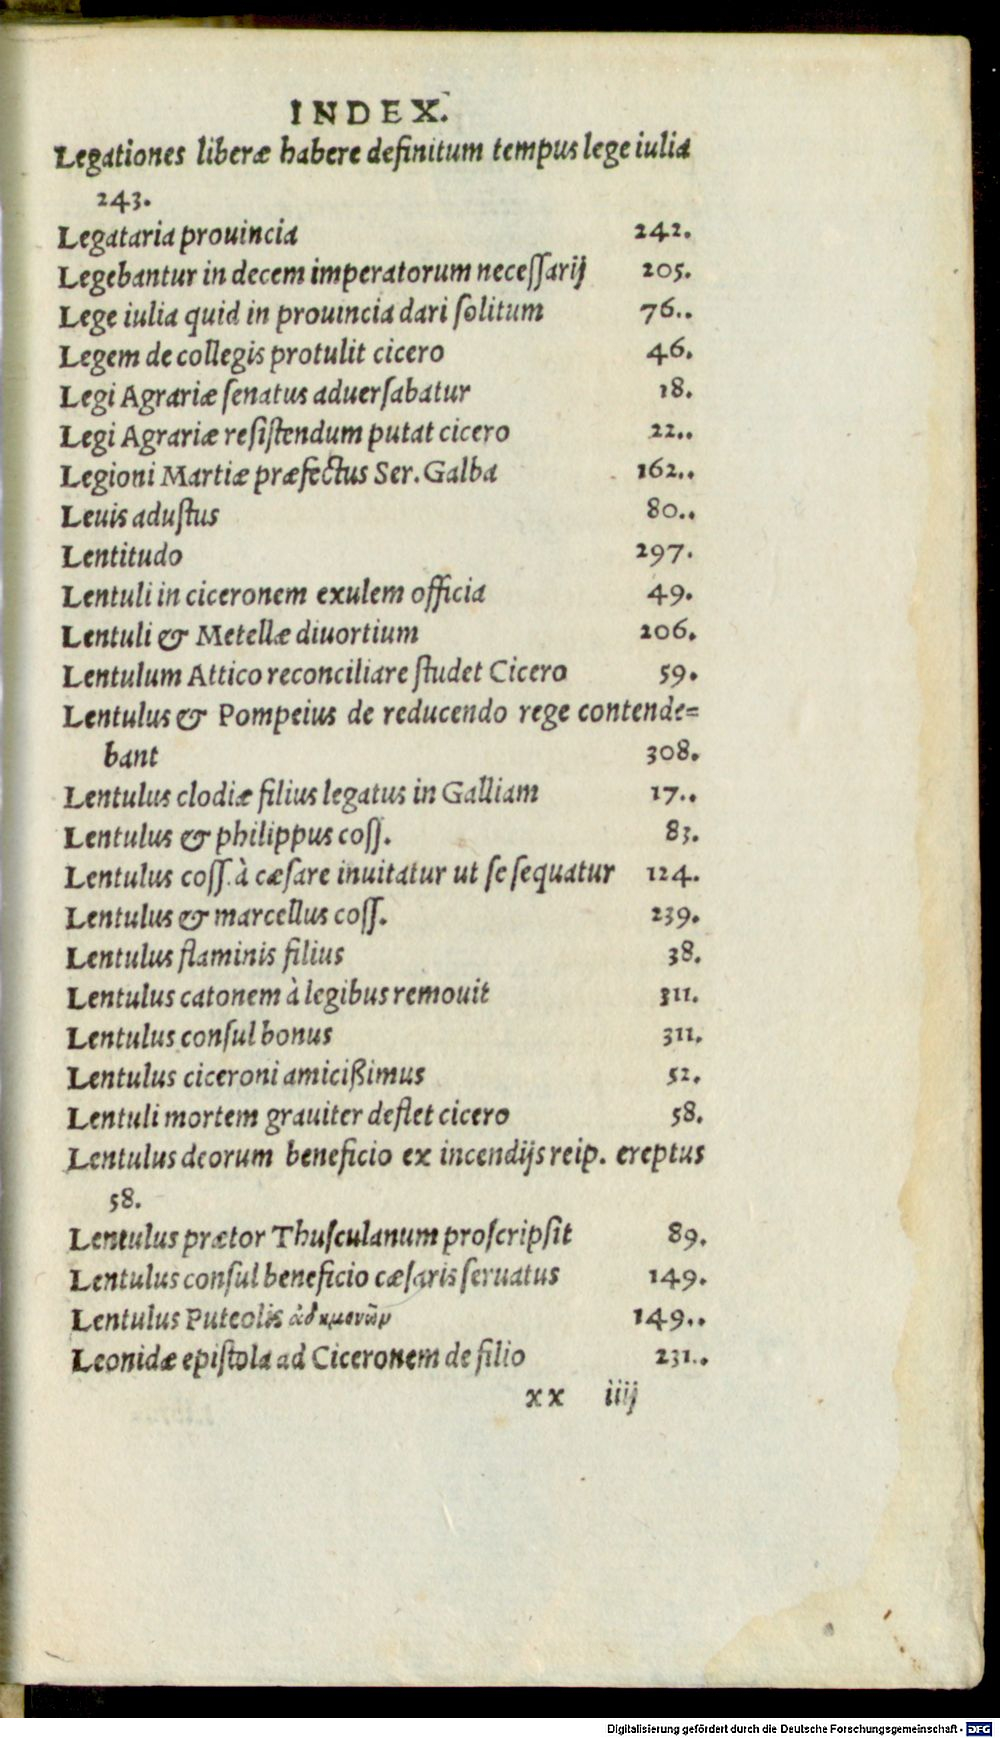 INDEX.
Legationes liberæ habere definitum tempus lege iulia
243.
Legataria prouincia 242.
Legebantur in decem imperatorum neceſſarij 205.
Lege iulia quid in prouincia dari ſolitum 76..
Legem de collegis protulit cicero 46.
Legi Agrariæ ſenatus aduerſabatur 18.
Legi Agrariæ reſiſtendum putat cicero 22..
Legioni Martiæ præfectus Ser. Galba 162..
Leuis aduſtus 80..
Lentitudo 297.
Lentuli in ciceronem exulem officia 49.
Lentuli & Metellæ diuortium 206.
Lentulum Attico reconciliare ſtudet Cicero 59.
Lentulus & Pompeius de reducendo rege contende=
bant 308.
Lentulus clodiæ filius legatus in Galliam 17..
Lentulus & philippus coſſ. 83.
Lentulus coſſ. à cæſare inuitatur ut ſe ſequatur 124.
Lentulus & marcellus coſſ. 239.
Lentulus flaminis filius 38.
Lentulus catonem à legibus remouit 311.
Lentulus conſul bonus 311.
Lentulus ciceroni amicißimus 52.
Lentuli mortem grauiter deflet cicero 58.
Lentulus deorum beneficio ex incendijs reip. ereptus
58.
Lentulus prætor Thuſculanum proſcripſit 89.
Lentulus conſul beneficio cæſaris ſeruatus 149.
Lentulus Puteolis ἀδημονῶν 149..
Leonidæ epiſtola ad Ciceronem de filio 231..
xx iiij
Digitalisierung gefördert durch die Deutsche Forschungsgemeinschaft - DFG